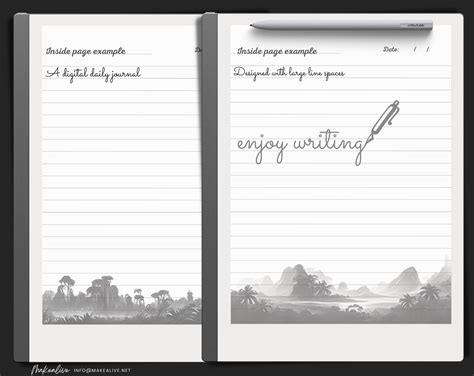 Inside page example
A digital daily journal
Inside page example Date: / /
Designed with large line spaces
enjoy writing
Makealive INFO@MAKEALIVE.NET